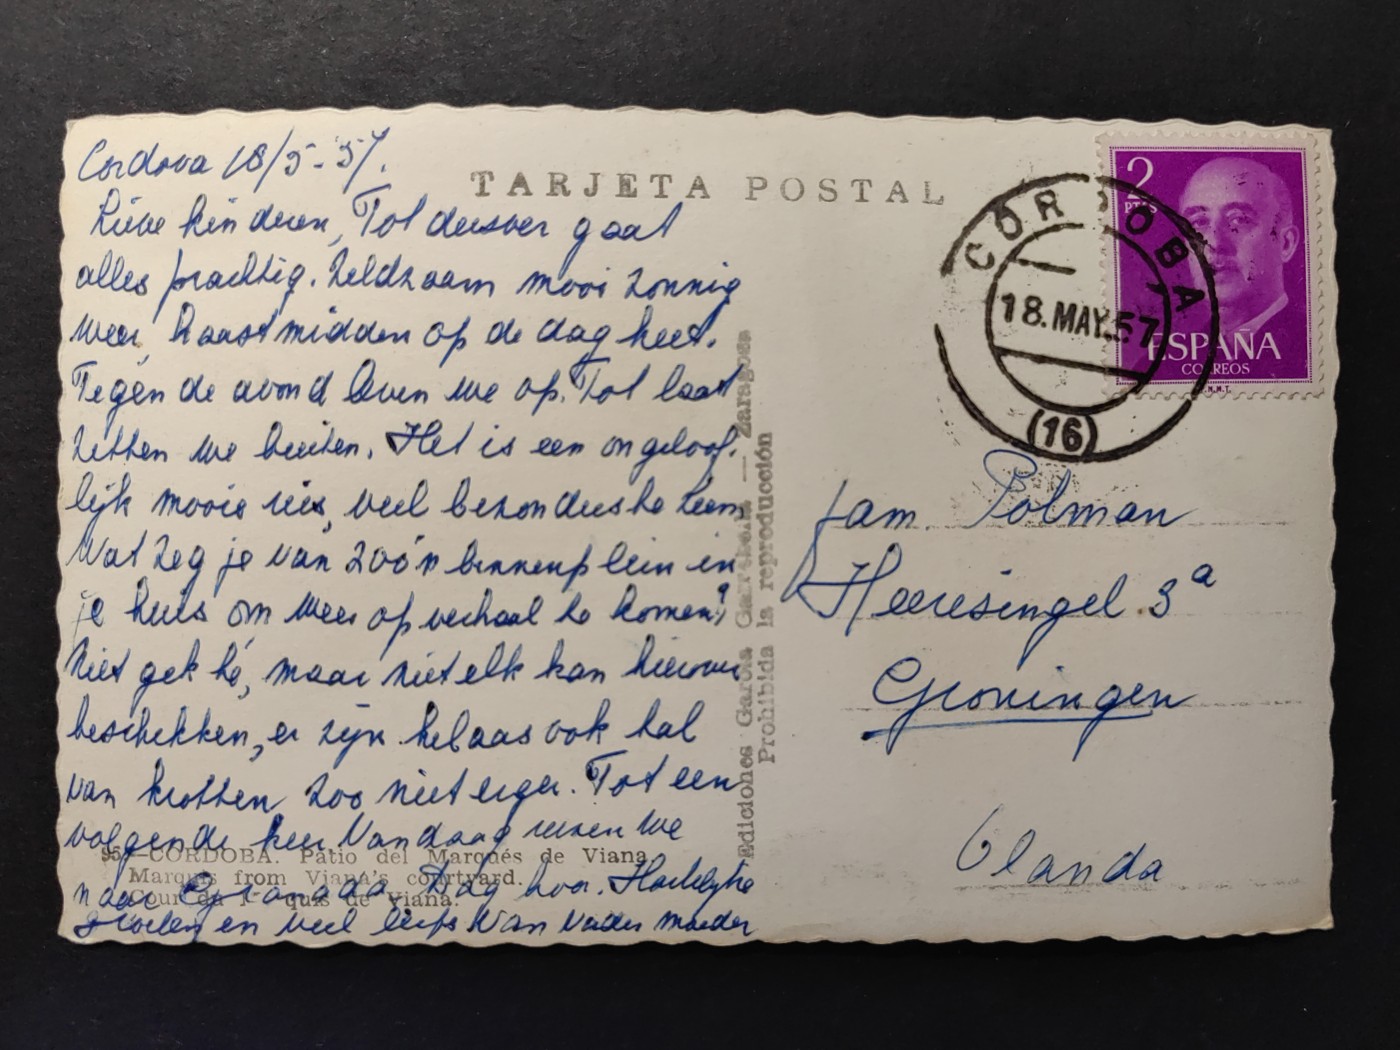 Cordova 18/5-57.
Lieve kinderen, Tot dusver gaat
alles prachtig. Zeldzaam mooi zonnig
weer, haast midden op de dag heet.
Tegen de avond leven we op. Tot laat
zitten we buiten. Het is een ongeloof-
lijk mooie reis, veel bezonders te zien
Wat zeg je van zoo'n binnenplein in
je huis om weer op verhaal te komen?
Niet gek hé, maar niet elk kan hierover
beschikken, er zijn helaas ook tal
van krotten zoo niet erger. Tot een
volgende keer Vandaag reizen we
naar Granada Dag hoor. Hartelijke
groeten en veel liefs van Vader moeder
95.—CÓRDOBA. Patio del Marqués de Viana
Marquis from Viana's courtyard.
Cour de quis de Viana.
TARJETA POSTAL
Ediciones García Garrabella — Zaragoza
Prohibida la reproducción
2
PTAS
ESPAÑA
CORREOS
F.N.M.T.
CÓRDOBA
18.MAY.57
(16)
fam. Polman
Heeresingel 3a
Groningen
Olanda